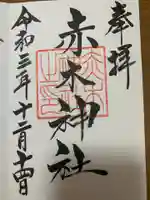 奉拝
赤木神社
令和三年十二月十四日